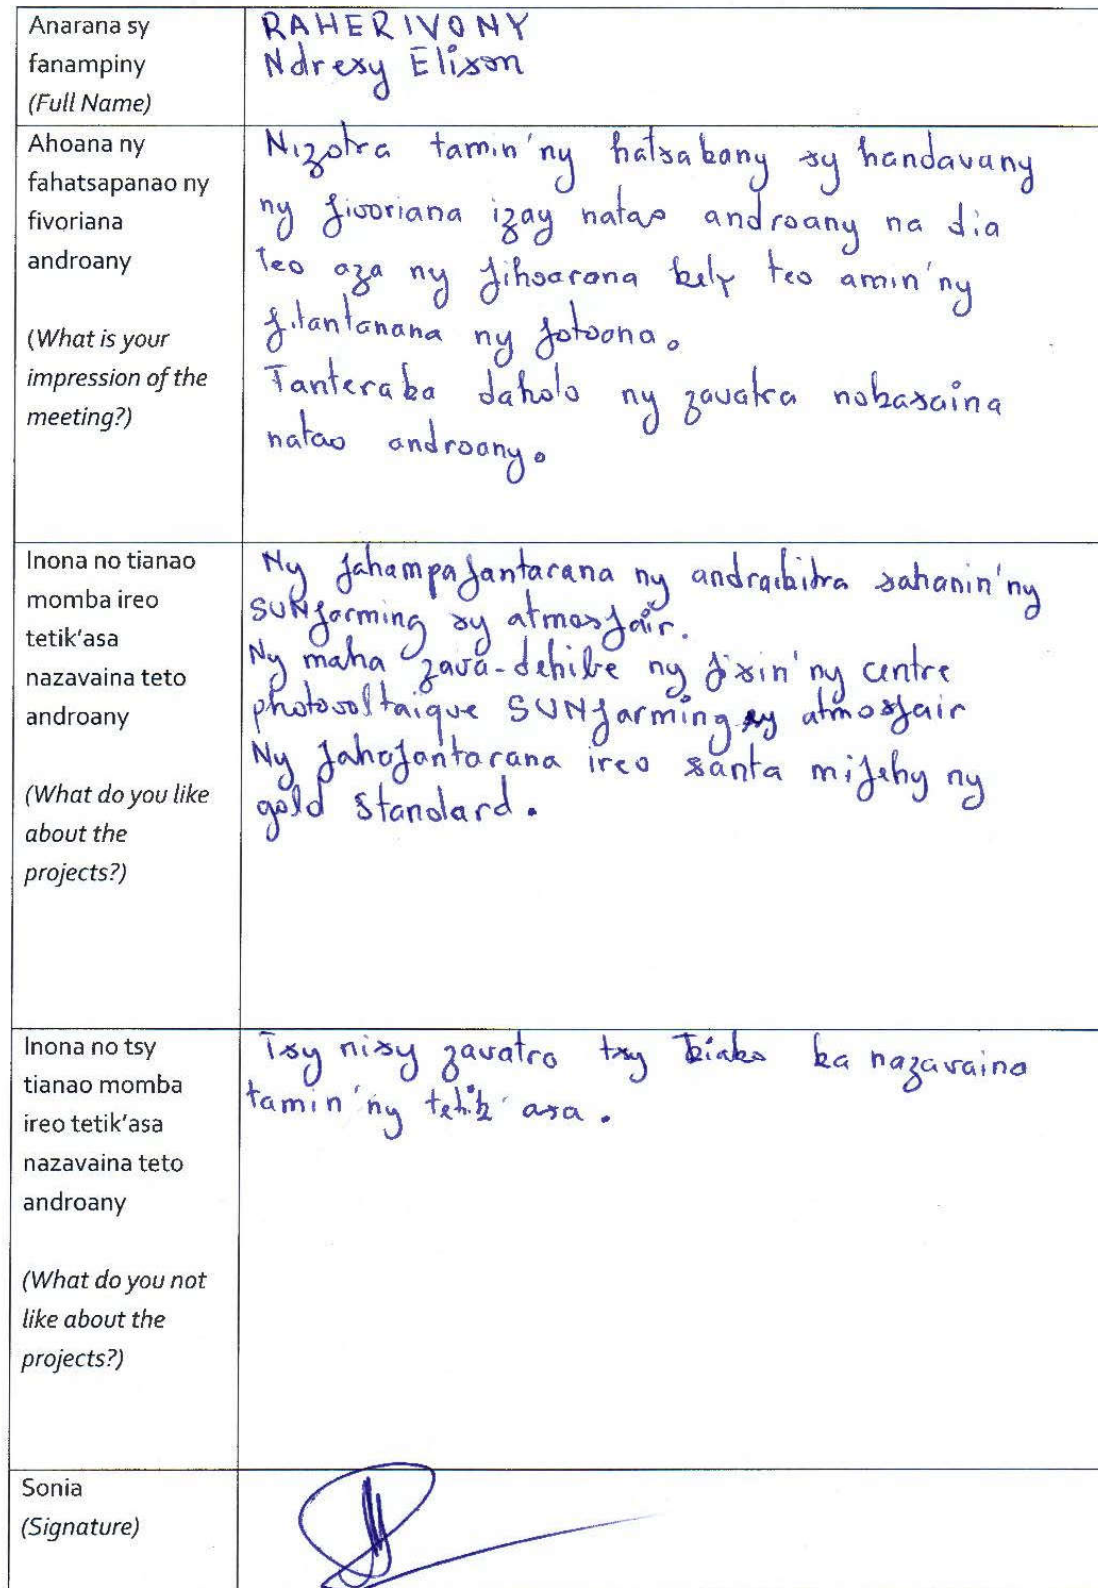 Anarana sy
fanampiny
(Full Name)
RAHERIVONY
Ndresy Elison
Ahoana ny
fahatsapanao ny
fivoriana
androany
(What is your
impression of the
meeting?)
Nizotra tamin'ny hatsabany sy handavany
ny fivoriana izay natao androany na dia
teo aza ny fihoarana kely teo amin'ny
fitantanana ny fotoana.
Tanteraka daholo ny zavatra nokasaina
natao androany.
Inona no tianao
momba ireo
tetik'asa
nazavaina teto
androany
(What do you like
about the
projects?)
Ny fahampafantarana ny andraikitra sahanin'ny
SUNfarming sy atmosfair.
Ny maha zava-dehibe ny fisin'ny centre
photovoltaique SUNfarming sy atmosfair
Ny fahafantarana ireo santa mifehy ny
gold standard.
Inona no tsy
tianao momba
ireo tetik'asa
nazavaina teto
androany
(What do you not
like about the
projects?)
Tsy nisy zavatra tsy tiako ka nazavaina
tamin'ny tetik'asa.
Sonia
(Signature)